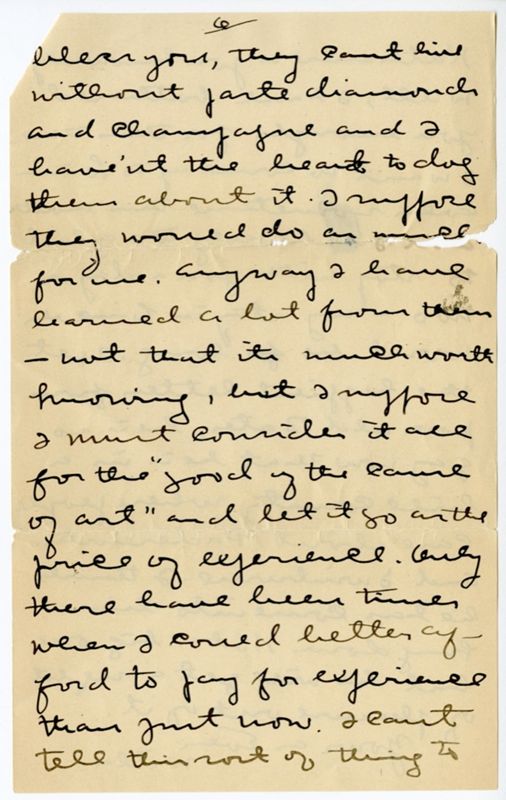 6
bless you, they can't live
without paste diamonds
and champagne and I
have'nt the heart to dog
them about it. I suppose
they would do as much
for me. Anyway I have
learned a lot from them
– not that its much worth
knowing, but I suppose
I must consider it all
for the "good of the cause
of art" and let it go as the
price of experience. Only
there have been times
when I could better af-
ford to pay for experience
than just now. I can't
tell this sort of thing to